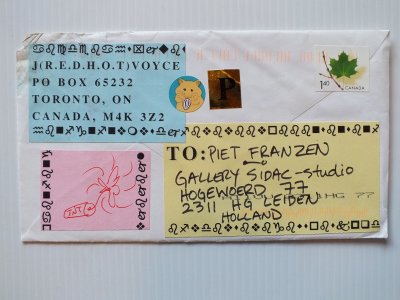 J(R.E.D.H.O.T)VOYCE
PO BOX 65232
TORONTO, ON
CANADA, M4K 3Z2
P
1.40
CANADA
TO: PIET FRANZEN
GALLERY SIDAC-studio
HOGEWOERD 77
2311 HG LEIDEN
HOLLAND
INT